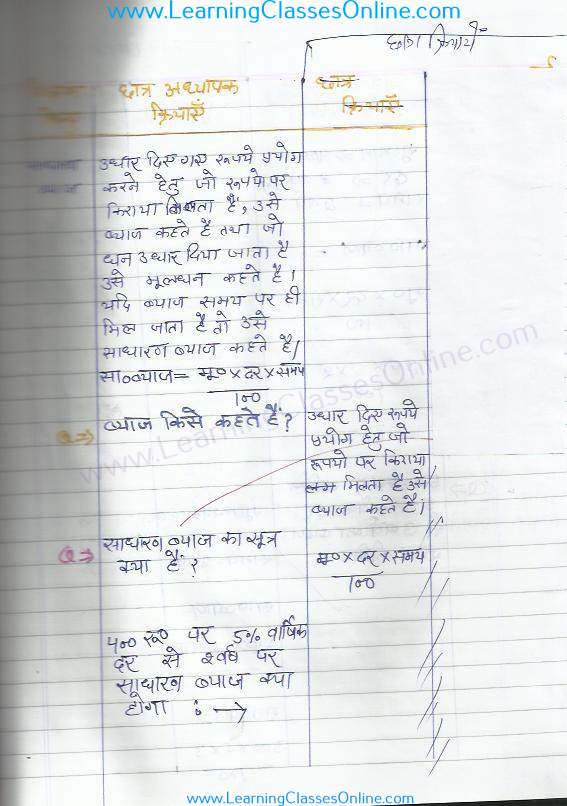 www.LearningClassesOnline.com
छात्र क्रियायें
छात्र अध्यापक
क्रियाएँ
छात्र
क्रियाएँ
उधार दिए गए रूपये प्रयोग
करने हेतु जो रूपयो पर
किराया मिलता है, उसे
ब्याज कहते है तथा जो
धन उधार दिया जाता है
उसे मूलधन कहते है।
यदि ब्याज समय पर ही
मिल जाता है तो उसे
साधारण ब्याज कहते है।
सा०ब्याज= मू०×दर×समय
100
Q⇒ ब्याज किसे कहते हैं?
उधार दिए रूपये
प्रयोग हेतु जो
रूपयो पर किराया
मिलता है उसे
ब्याज कहते है।
Q⇒ साधारण ब्याज का सूत्र
क्या है?
मू०×दर×समय
100
रू० पर 5% वार्षिक
दर से वर्ष पर
साधारण ब्याज क्या
होगा :→
www.LearningClassesOnline.com
www.LearningClassesOnline.com